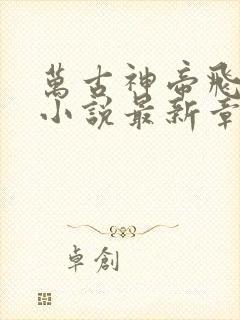 萬古神帝飛
小説最新章
卓創